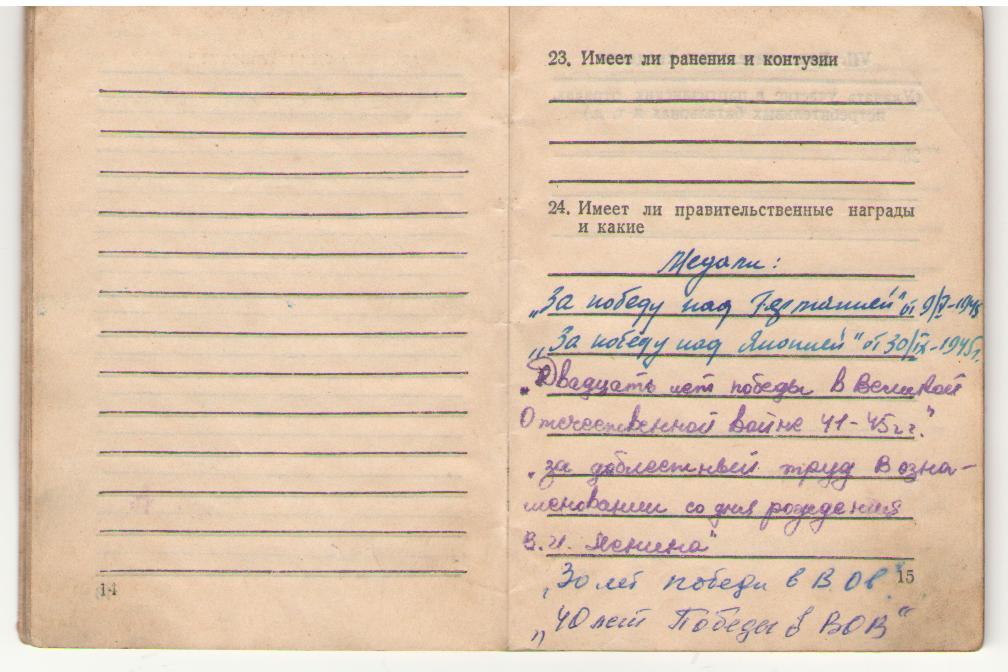 14
23. Имеет ли ранения и контузии
24. Имеет ли правительственные награды
и какие
Медали:
„За победу над Германией" от 9/V-1945
„За победу над Японией" от 30/IX-1945г.
„Двадцать лет победы в Великой
Отечественной войне 41-45гг."
„за доблестный труд в озна-
меновании со дня рождения
В.И. Ленина"
„30 лет победы в ВОв"
„40 лет Победы в ВОВ"
15